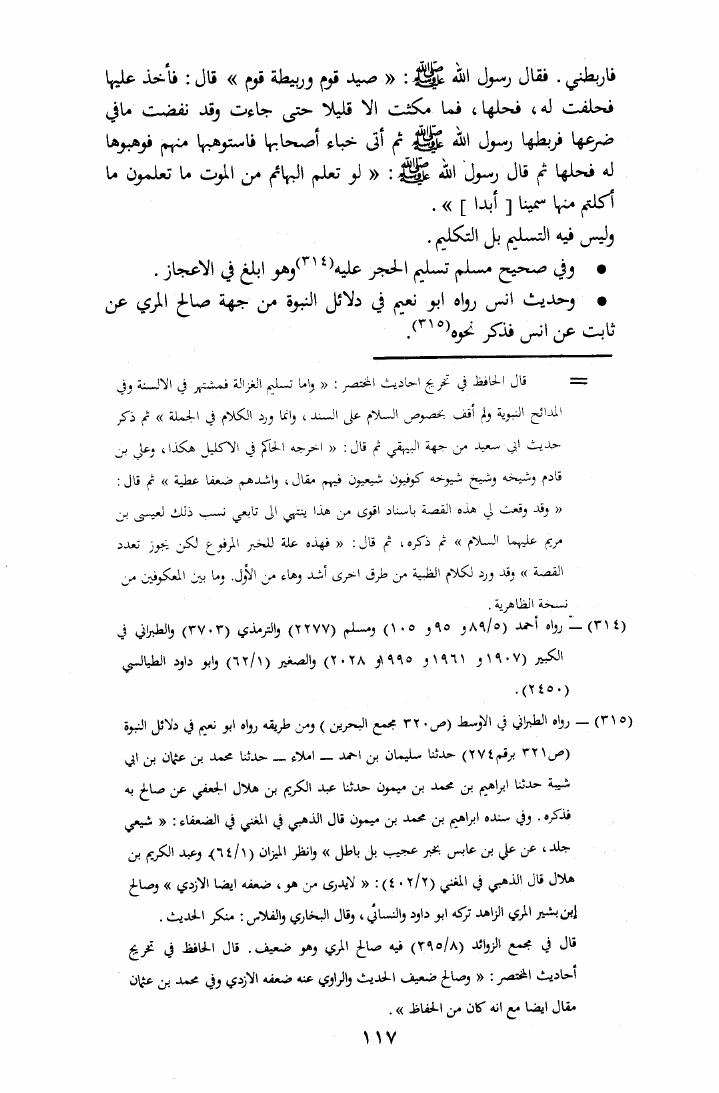 فاربطني . فقال رسول الله ﷺ : « صيد قوم وربيطة قوم » قال : فأخذ عليها
فحلفت له ، فحلها ، فما مكثت الا قليلا حتى جاءت وقد نفضت مافي
ضرعها فربطها رسول الله ﷺ ثم أتى خباء أصحابها فاستوهبها منهم فوهبوها
له فحلها ثم قال رسول الله ﷺ : « لو تعلم البهائم من الموت ما تعلمون ما
أكلتم منها سمينا [ أبدا ] » .
وليس فيه التسليم بل التكليم .
● وفي صحيح مسلم تسليم الحجر عليه (٣١٤) وهو ابلغ في الاعجاز .
● وحديث انس رواه ابو نعيم في دلائل النبوة من جهة صالح المري عن
ثابت عن انس فذكر نحوه (٣١٥) .
= قال الحافظ في تخريج احاديث المختصر : « واما تسليم الغزالة فمشتهر في الالسنة وفي
المدائح النبوية ولم أقف بخصوص السلام على السند ، وانما ورد الكلام في الجملة » ثم ذكر
حديث ابي سعيد من جهة البيهقي ثم قال : « اخرجه الحاكم في الاكليل هكذا ، وعلي بن
قادم وشيخه وشيخ شيوخه كوفيون شيعيون فيهم مقال ، واشدهم ضعفا عطية » ثم قال :
« وقد وقعت لي هذه القصة باسناد اقوى من هذا ينتهي الى تابعي نسب ذلك لعيسى بن
مريم عليهما السلام » ثم ذكره ، ثم قال : « فهذه علة للخبر المرفوع لكن يجوز تعدد
القصة » وقد ورد لكلام الظبية من طرق اخرى أشد وهاء من الأول . وما بين المعكوفين من
نسخة الظاهرية .
(٣١٤) ــ رواه أحمد (٨٩/٥ و ٩٥ و ١٠٥) ومسلم (٢٢٧٧) والترمذي (٣٧٠٣) والطبراني في
الكبير (١٩٠٧ و ١٩٦١ و ١٩٩٥ و ٢٠٢٨) والصغير (٦٢/١) وابو داود الطيالسي
(٢٤٥٠) .
(٣١٥) ــ رواه الطبراني في الأوسط (ص ٣٢٠ مجمع البحرين) ومن طريقه رواه ابو نعيم في دلائل النبوة
(ص ٣٢١ برقم ٢٧٤) حدثنا سليمان بن احمد ــ املاء ــ حدثنا محمد بن عثمان بن ابي
شيبة حدثنا ابراهيم بن محمد بن ميمون حدثنا عبد الكريم بن هلال الجعفي عن صالح به
فذكره . وفي سنده ابراهيم بن محمد بن ميمون قال الذهبي في المغني في الضعفاء : « شيعي
جلد ، عن علي بن عابس بخبر عجيب بل باطل » وانظر الميزان (٦٤/١) وعبد الكريم بن
هلال قال الذهبي في المغني (٤٠٢/٢) : « لايدرى من هو ، ضعفه ايضا الازدي » وصالح
ابن بشير المري الزاهد تركه ابو داود والنسائي ، وقال البخاري والفلاس : منكر الحديث .
قال في مجمع الزوائد (٢٩٥/٨) فيه صالح المري وهو ضعيف . قال الحافظ في تخريج
أحاديث المختصر : « وصالح ضعيف الحديث والراوي عنه ضعفه الازدي وفي محمد بن عثمان
مقال ايضا مع انه كان من الحفاظ » .
١١٧